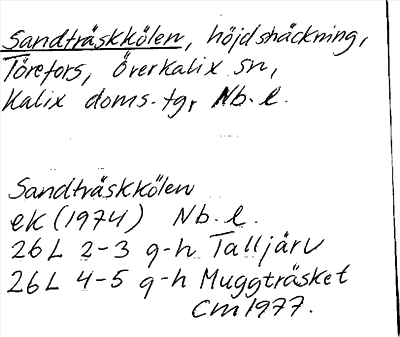 Sandträskkölen, höjdsträckning,
Törefors, Överkalix sn,
Kalix doms.tg, Nb.l.
Sandträskkölen
ek (1974) Nb.l.
26L 2-3 g-h Talljärv
26L 4-5 g-h Muggträsket
CM 1977.